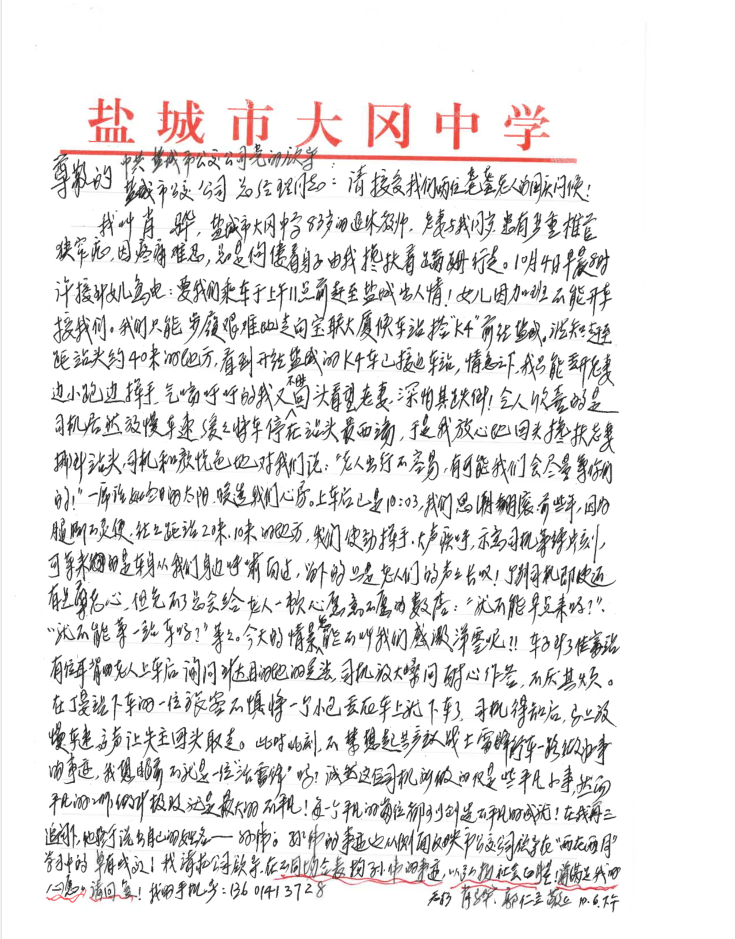 盐城市大冈中学
尊敬的 中共盐城市公交公司党的领导
盐城市公交公司总经理同志：请接受我们两位耄耋老人的国庆问候！
我叫肖骅，盐城市大冈中学83岁的退休教师，老妻与我同岁患有多重椎管
狭窄症，因疼痛难忍，总是佝偻着身子由我搀扶着蹒跚行走。10月4日早晨8时
许接到女儿急电：要我们乘车于上午11点前赶至盐城出人情！女儿因加班不能开车
接我们。我们只能步履艰难地走向宝联大厦候车站搭"K4"前往盐城。谁知走至
距站头约40米的地方，看到开往盐城的K4车已接近车站，情急之下，我只能丢开老妻
边小跑边挥手，气喘呼呼的我又不时回头看望老妻，深怕其跌倒！令人欣喜的是
司机居然放慢车速缓缓将车停在站头最西端，于是我放心地回头搀扶老妻
挪到站头，司机和颜悦色地对我们说："老人出行不容易，有可能我们会尽量等你们
的！"一席话如冬日的太阳，暖透我们心房。上车后已是10:03，我们思潮翻滚：前些年，因为
腿脚不灵便，往往距站20米、10米的地方，我们使劲挥手、大声疾呼，示意司机等待片刻，
可等来的是车身从我们身边呼啸而过，留下的只是老人们的声声长叹！个别司机即使还
有点良心，但免不了总会给老人一颗心愿高不愿的数落："就不能早点来吗？"、
"就不能等一班车吗？"等等。今天的情景能不叫我们感激涕零呢？！车子到了佳富站
有位耳背的老人上车后询问到达目的地的走法，司机放大嗓门耐心作答，不厌其烦。
在下晏站下车的一位旅客不慎将一个小包丢在车上就下车了，司机得知后，马上放
慢车速，高声让失主回头取走。此时此刻，不禁想起共产主义战士雷锋行车一路做好事
的事迹，我想眼前不就是一位"活雷锋"吗！诚然这位司机所做的仅是些平凡小事，然而
平凡的工作做到极致就是最大的不平凡！每一个平凡的岗位都可创造不平凡的成就！在我再三
追问下，他才说出自己的姓名——孙伟。孙伟的事迹也从侧面反映市公交公司领导在"两在两同"
学习中的卓有成效！我请求公司领导，在公司内会表扬孙伟的事迹，以弘扬社会正能！请满足我的
心愿。请回复！我的手机号：13601413728
老妇 肖骅、郭仁兰 敬上 10.6.下午